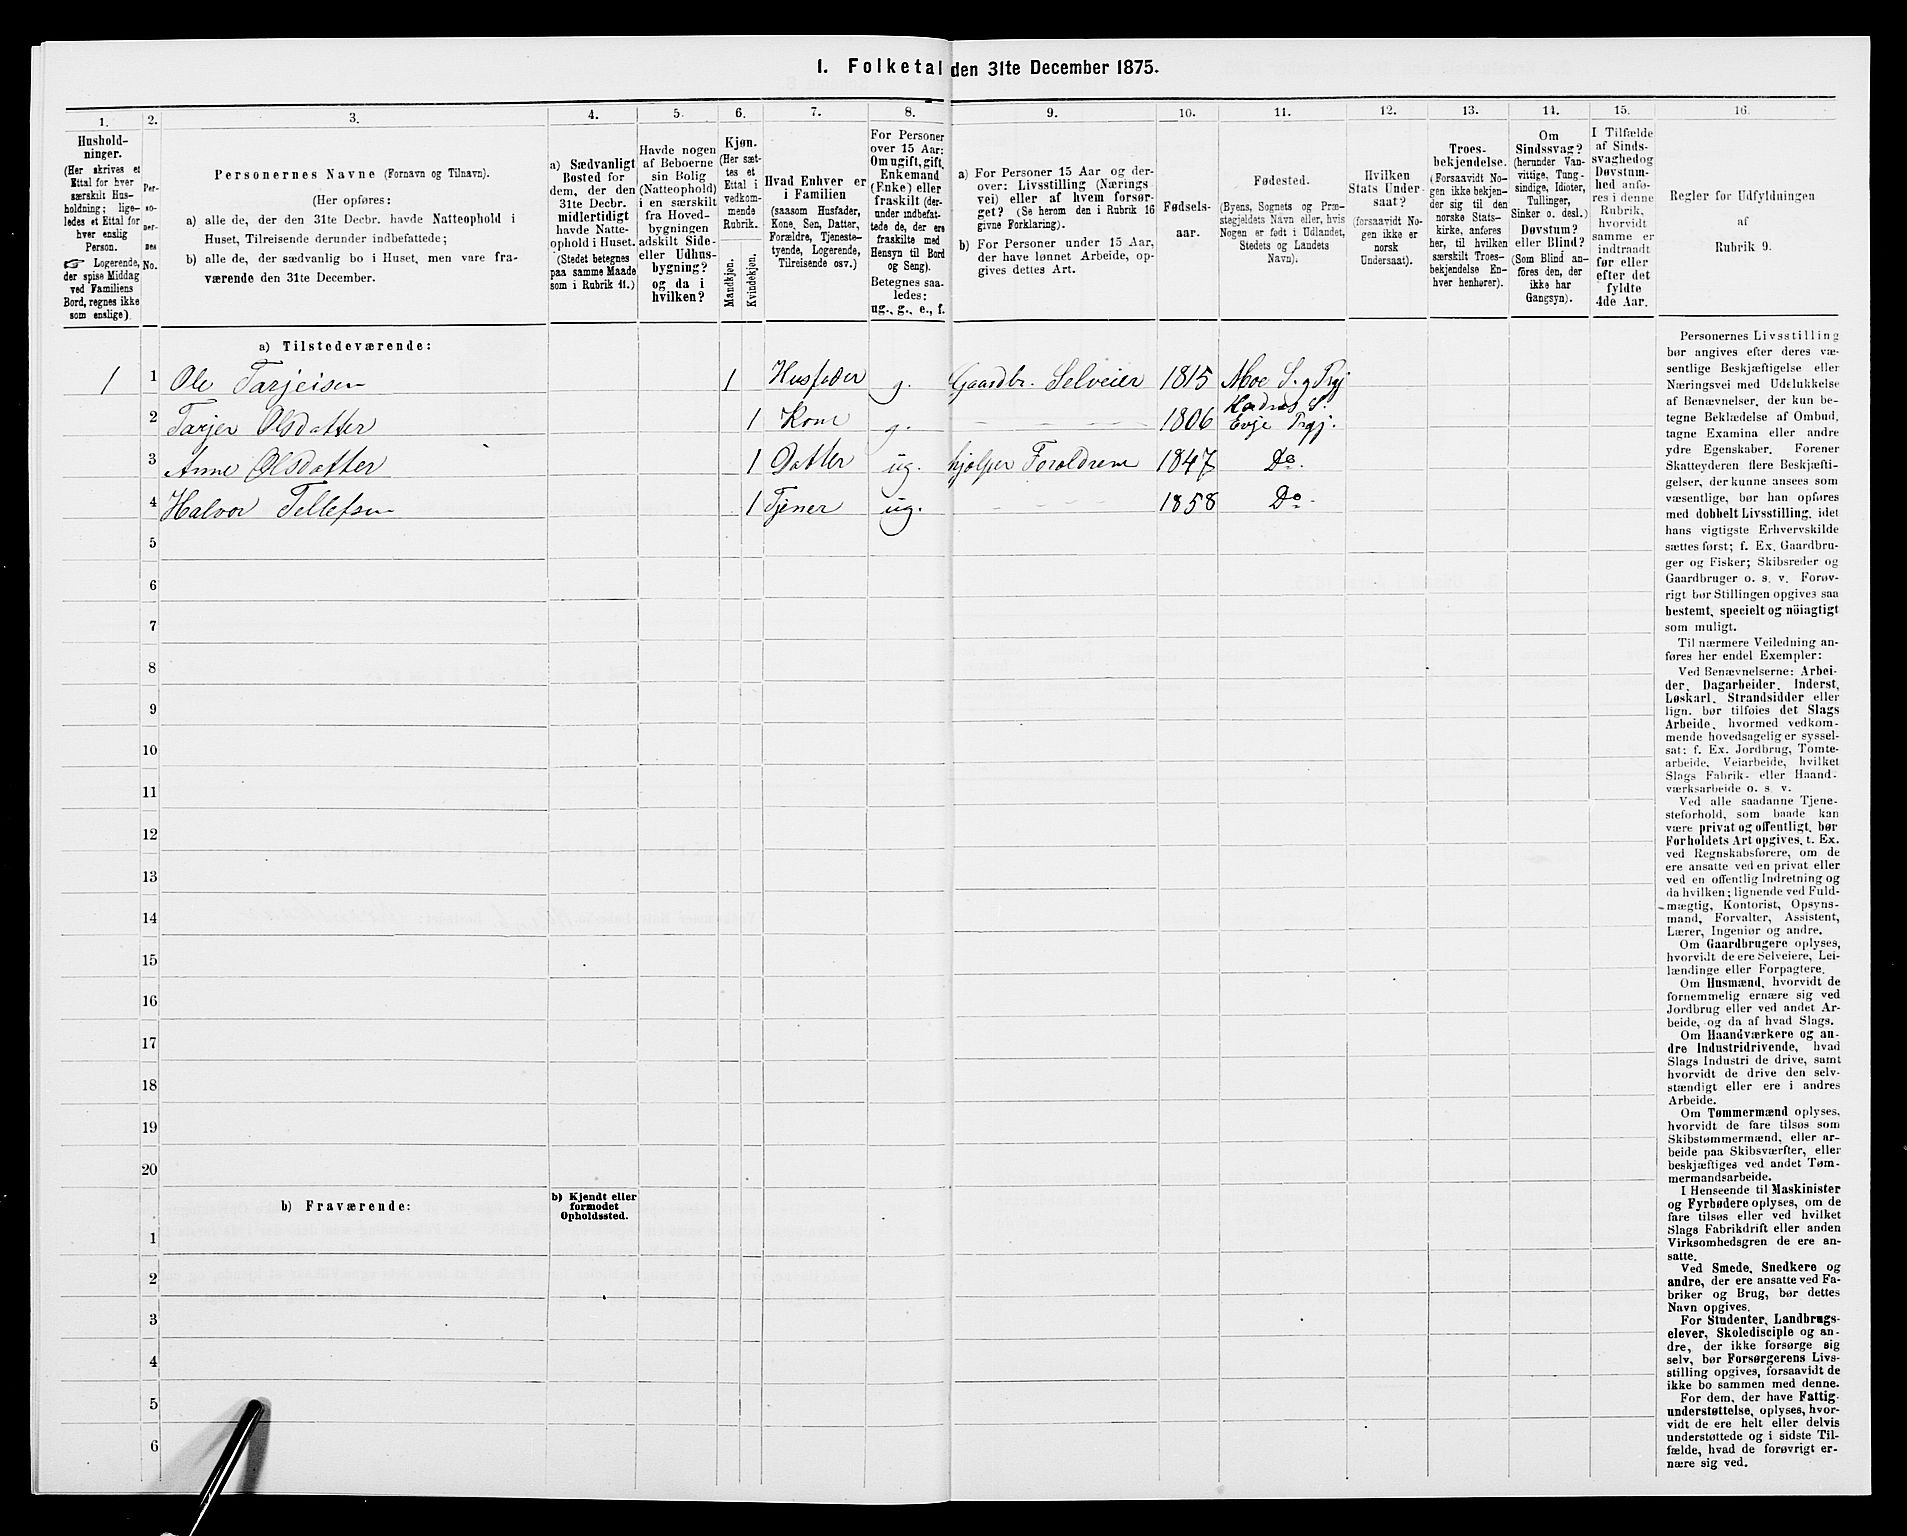 1. Folketal den 31te December 1875.
1.
2.
3.
4.
5.
6.
7.
8.
9.
10.
11.
12.
13.
14.
15.
16.
Hushold-
ninger.
(Her skrives et
Ettal for hver
særskilt Hus-
holdning; lige-
ledes et Ettal for
hver enslig
Person.
☞ Logerende,
der spise Middag
ved Familiens
Bord, regnes ikke
som enslige).
Per-
so-
ner-
nes
No.
Personernes Navne (Fornavn og Tilnavn).
(Her opføres:
a) alle de, der den 31te Decbr. havde Natteophold i
Huset, Tilreisende derunder indbefattede;
b) alle de, der sædvanlig bo i Huset, men vare fra-
værende den 31te December.
a) Sædvanligt
Bosted for
dem, der den
31te Decbr.
midlertidigt
havde Natte-
ophold i Huset.
(Stedet betegnes
paa samme Maade
som i Rubrik 11.)
Havde nogen
af Beboerne
sin Bolig
(Natteophold)
i en særskilt
fra Hoved-
bygningen
adskilt Side-
eller Udhus-
bygning?
og da i
hvilken?
Kjøn.
(Her sæt-
tes et
Ettal i
vedkom-
mende
Rubrik.
Mandkjøn.
Kvindekjøn.
Hvad Enhver er
i Familien
(saasom Husfader,
Kone, Søn, Datter,
Forældre, Tjeneste-
tyende, Logerende,
Tilreisende osv.)
For Personer
over 15 Aar:
Om ugift, gift,
Enkemand
(Enke) eller
fraskilt (der-
under indbefat-
tede de, der ere
fraskilte med
Hensyn til Bord
og Seng).
Betegnes saa-
ledes:
ug., g., e., f.
a) For Personer 15 Aar og der-
over: Livsstilling (Nærings
vei) eller af hvem forsør-
get? (Se herom den i Rubrik 16
givne Forklaring).
b) For Personer under 15 Aar,
der have lønnet Arbeide, op-
gives dettes Art.
Fødsels-
aar.
Fødested.
(Byens, Sognets og Præ-
stegjeldets Navn eller, hvis
Nogen er født i Udlandet,
Stedets og Landets
Navn).
Hvilken
Stats Under-
saat?
(forsaavidt No-
gen ikke er
norsk
Undersaat).
Troes-
bekjendelse.
(Forsaavidt No-
gen ikke bekjen-
der sig til den
norske Stats-
kirke, anføres
her, til hvilken
særskilt Troes-
bekjendelse En-
hver henhører).
Om
Sindssvag?
(herunder Van-
vittige, Tung-
sindige, Idioter,
Tullinger,
Sinker o. desl.)
Døvstum?
eller Blind?
(Som Blind an-
føres den, der
ikke har
Gangsyn).
I Tilfælde
af Sinds-
svaghed og
Døvstum-
hed anfø-
res i denne
Rubrik,
hvorvidt
samme er
indtraadt
før eller
efter det
fyldte
4de Aar.
Regler for Udfyldningen
af
Rubrik 9.
a) Tilstedeværende:
1 1 Ole Tarjeisen 1 Husfader g. Gaardbr. Selveier 1815 Moe S. og Prgj
2 Tarjer Olsdatter 1 Kone g. 1806 Hodnes S. Evje Prgj.
3 Anne Olsdatter 1 Datter ug. hjelper Foreldrene 1847 Do.
4 Halvor Tellefsen 1 Tjener ug. 1858 Do.
5
6
7
8
9
10
11
12
13
14
15
16
17
18
19
20
b) Fraværende:
b) Kjendt eller
formodet
Opholdssted.
1
2
3
4
5
6
Personernes Livsstilling
bør angives efter deres væ-
sentlige Beskjæftigelse eller
Næringsvei med Udelukkelse
af Benævnelser, der kun be-
tegne Beklædelse af Ombud,
tagne Examina eller andre
ydre Egenskaber. Forener
Skatteyderen flere Beskjæfti-
gelser, der kunne ansees som
væsentlige, bør han opføres
med dobbelt Livsstilling, idet
hans vigtigste Erhvervskilde
sættes først; f. Ex. Gaardbru-
ger og Fisker; Skibsreder og
Gaardbruger o. s. v. Forøv-
rigt bør Stillingen opgives saa
bestemt, specielt og nöiagtigt
som muligt.
Til nærmere Veiledning an-
føres her endel Exempler:
Ved Benævnelserne: Arbei-
der, Dagarbeider, Inderst,
Løskarl, Strandsidder eller
lign. bør tilføies det Slags
Arbeide, hvormed vedkom-
mende hovedsagelig er syssel-
sat; f. Ex. Jordbrug, Tomte-
arbeide, Veiarbeide, hvilket
Slags Fabrik- eller Haand-
værksarbeide o. s. v.
Ved alle saadanne Tjene-
steforhold, som baade kan
være privat og offentligt, bør
Forholdets Art opgives, t. Ex.
ved Regnskabsførere, om de
ere ansatte ved en privat eller
ved en offentlig Indretning og
da hvilken; lignende ved Fuld-
mægtig, Kontorist, Opsyns-
mand, Forvalter, Assistent,
Lærer, Ingeniør og andre.
Om Gaardbrugere oplyses,
hvorvidt de ere Selveiere, Lei-
lændinge eller Forpagtere.
Om Husmænd, hvorvidt de
fornemmelig ernære sig ved
Jordbrug eller ved andet Ar-
beide, og da af hvad Slags.
Om Haandværkere og an-
dre Industridrivende, hvad
Slags Industri de drive, samt
hvorvidt de drive den selv-
stændigt eller ere i andres
Arbeide.
Om Tømmermænd oplyses,
hvorvidt de fare tilsøs som
Skibstømmermænd, eller ar-
beide paa Skibsværfter, eller
beskjæftiges ved andet Tøm-
mermandsarbeide.
I Henseende til Maskinister
og Fyrbødere oplyses, om de
fare tilsøs eller ved hvilket
Slags Fabrikdrift eller anden
Virksomhedsgren de ere an-
satte.
Ved Smede, Snedkere og
andre, der ere ansatte ved Fa-
briker og Brug, bør dettes
Navn opgives.
For Studenter, Landbrugs-
elever, Skoledisciple og an-
dre, der ikke forsørge sig
selv, bør Forsørgerens Livs-
stilling opgives, forsaavidt de
ikke bo sammen med denne.
For dem, der have Fattig-
understøttelse, oplyses, hvor-
vidt de ere helt eller delvis
understøttede og i sidste Til-
fælde, hvad de forøvrigt er-
nære sig ved.